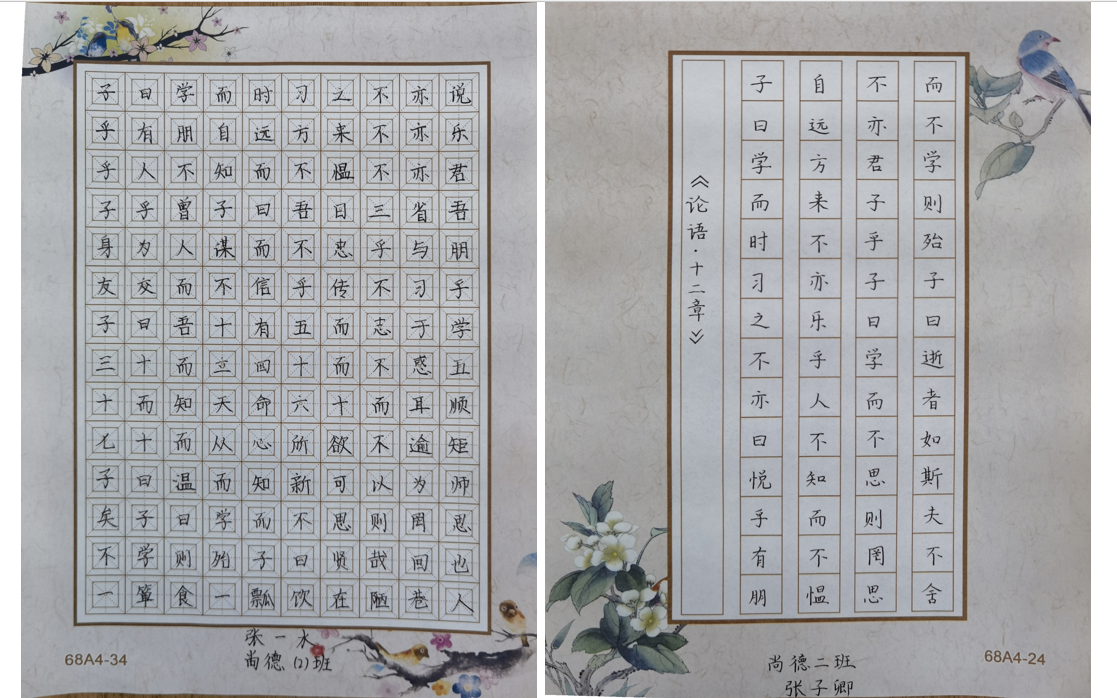 子曰学而时习之不亦说
乎有朋自远方来不亦乐
乎人不知而不愠不亦君
子乎曾子曰吾日三省吾
身为人谋而不忠乎与朋
友交而不信乎传不习乎
子曰吾十有五而志于学
三十而立四十而不惑五
十而知天命六十而耳顺
七十而从心所欲不逾矩
子曰温而知新可以为师
矣子曰学而不思则罔思
不学则殆子曰贤哉回也
一箪食一瓢饮在陋巷人
68A4-34
张一水
尚德(2)班
《论语·十二章》
子曰学而时习之不亦曰悦乎有朋
自远方来不亦乐乎人不知而不愠
不亦君子乎子曰学而不思则罔思
而不学则殆子曰逝者如斯夫不舍
68A4-24
尚德二班
张子卿